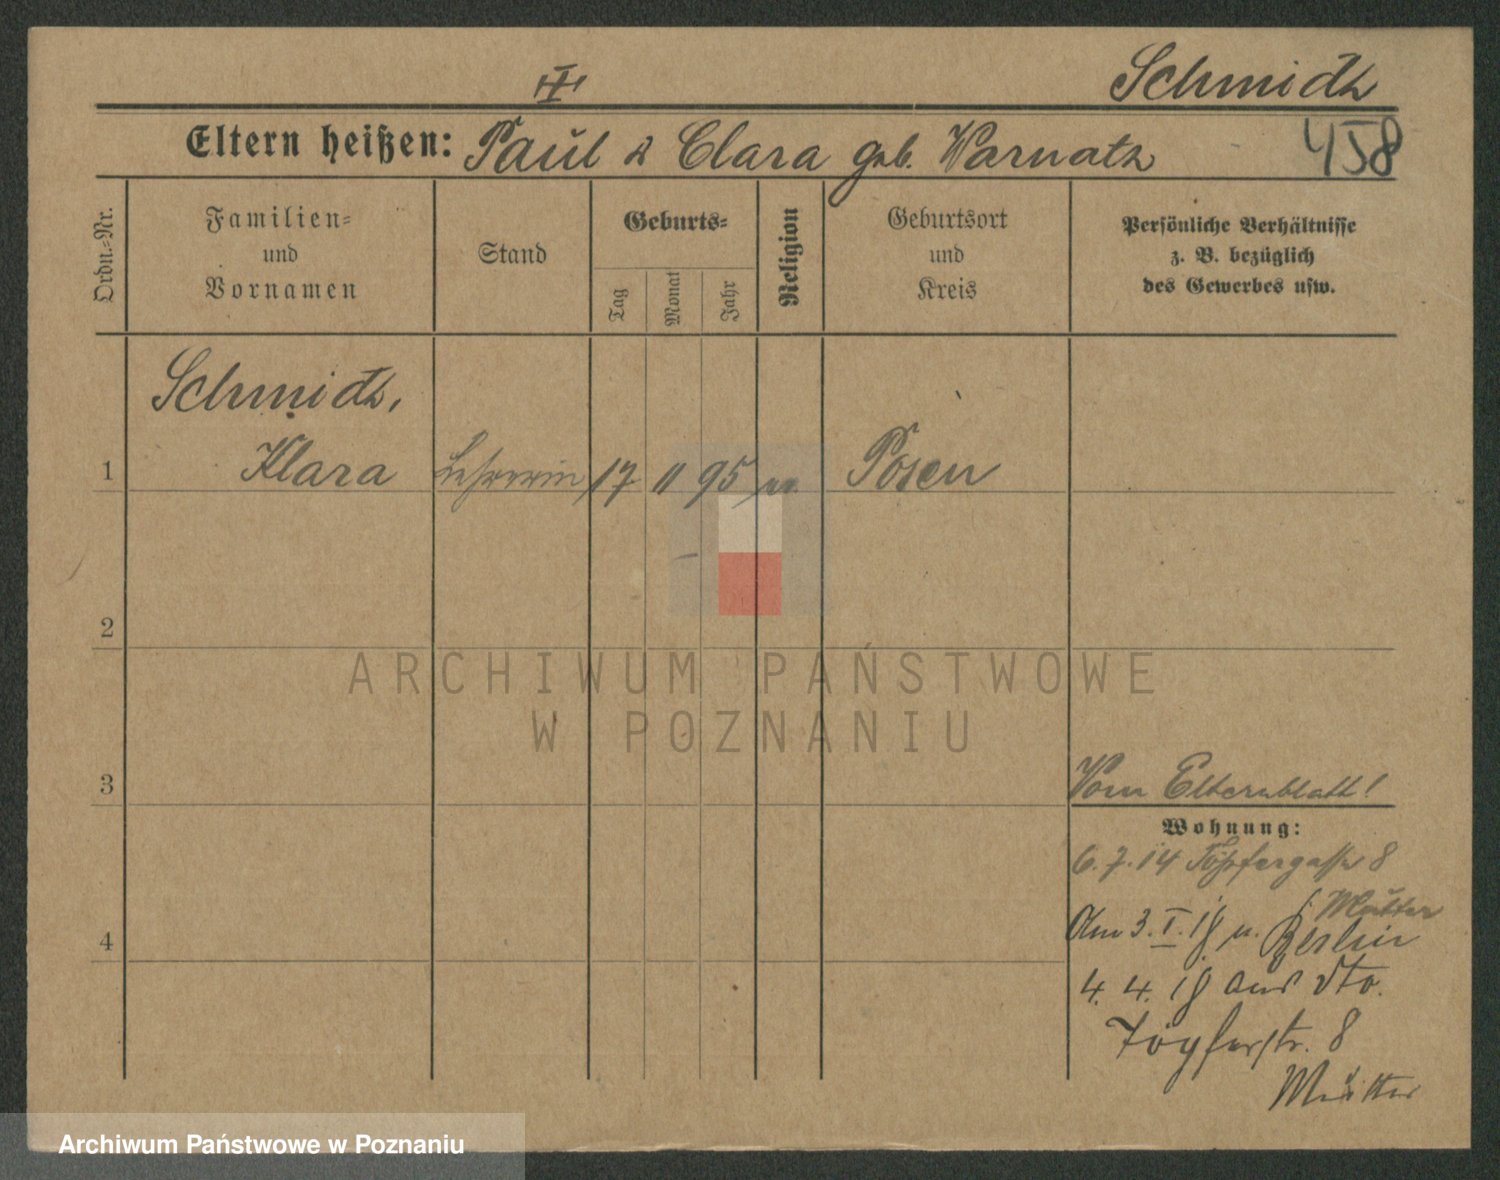 Schmidt
Eltern heißen: Paul & Clara geb. Warnatz
458
Ordn.-Nr.
Familien- und Vornamen
Stand
Geburts-
Tag
Monat
Jahr
Religion
Geburtsort und Kreis
Persönliche Verhältnisse
z. B. bezüglich
des Gewerbes usw.
Schmidt,
1 Klara Lehrerin 17 11 95 Posen
2
ARCHIWUM PAŃSTWOWE
W POZNANIU
3
Vom Elternblatt!
Wohnung:
6.7.14 Töpfergasse 8
Mutter
4
Am 3.I.18 n. Berlin
4.4.18 aus dto.
Töpferstr. 8
Mutter
Archiwum Państwowe w Poznaniu